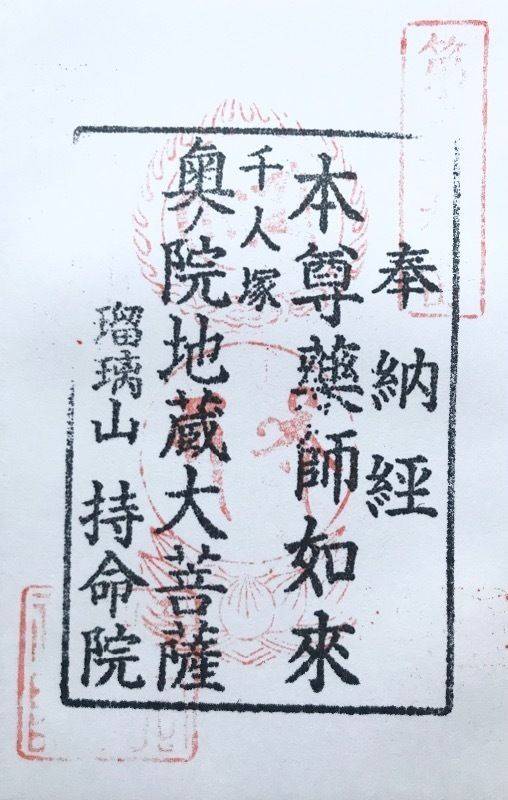 奉納経
本尊藥師如來
千人塚
奥ノ院地蔵大菩薩
瑠璃山 持命院